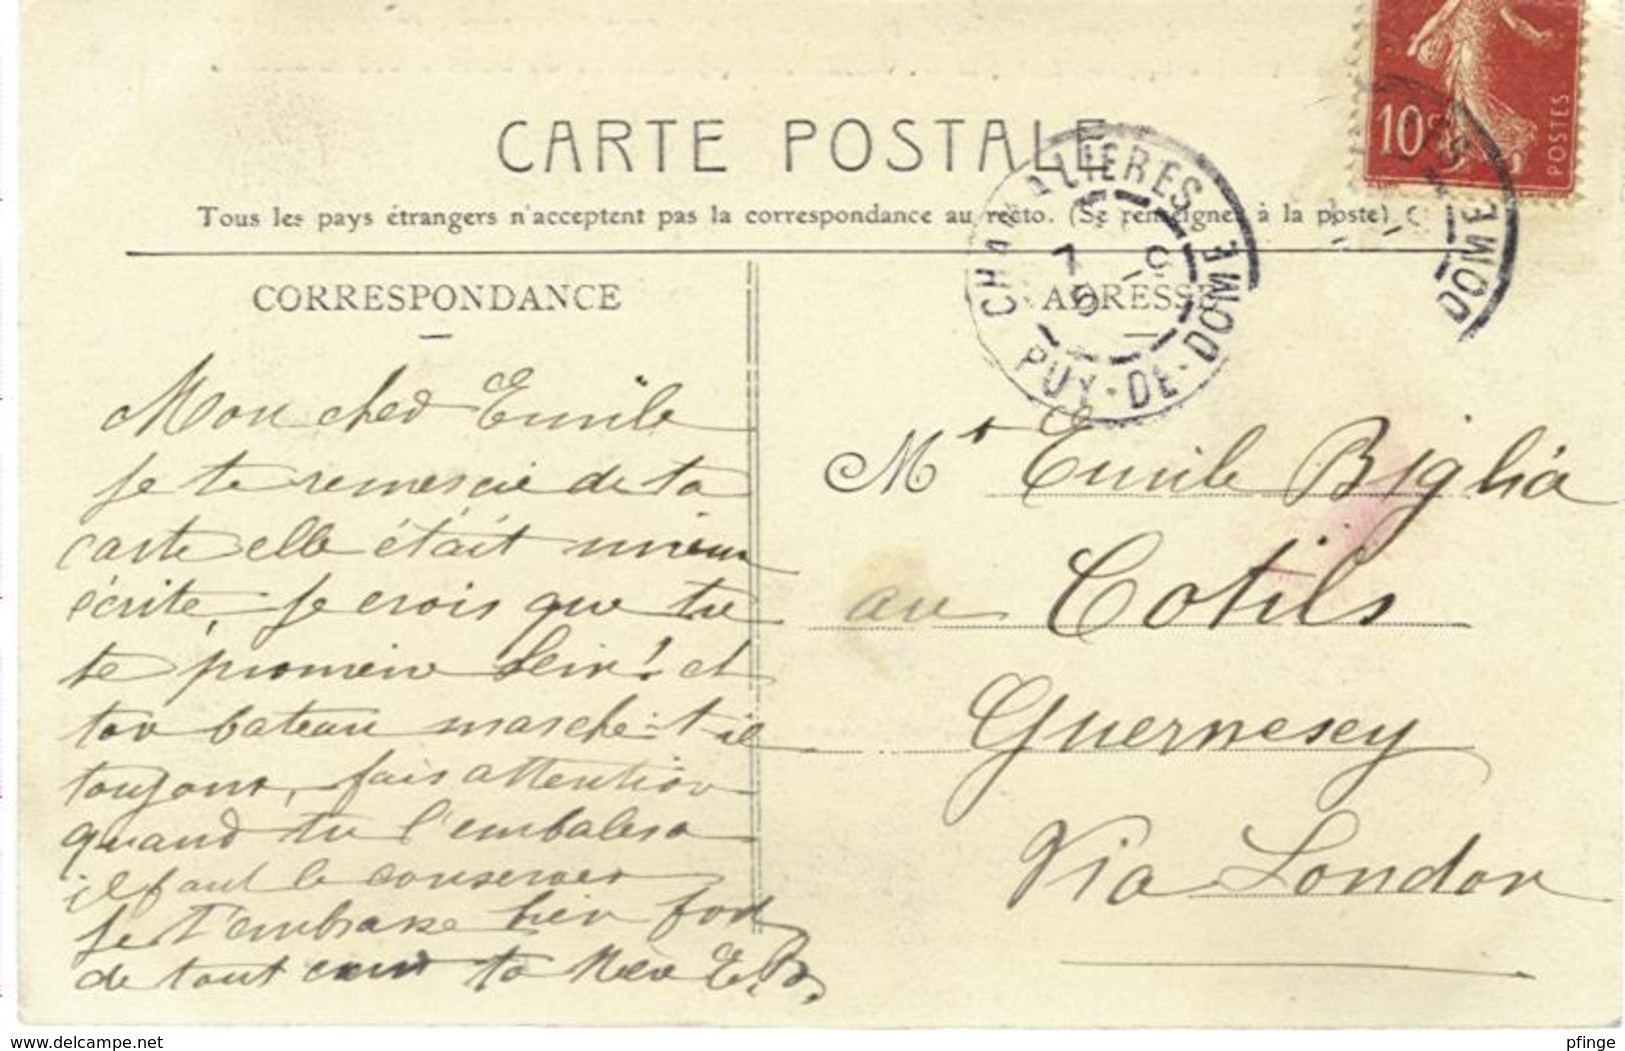 CARTE POSTALE
Tous les pays étrangers n'acceptent pas la correspondance au recto. (Se renseigner à la poste)
CORRESPONDANCE
ADRESSE
CHAMALIERES
7 9
PUY-DE-DOME
10c
POSTES
DOME
Mon cher Emile
je te remercie de ta
carte elle était mieux
écrite, je crois que tu
te promène bien! et
ton bateau marche-t-il
toujours, fais attention
quand tu l'embalera
il faut le conserver
Je t'embrasse bien fort
de tout cœur ta Mère E.B.
Mr Emile Biglia
au Cotils
Guernesey
Via London
www.delcampe.net
pfinge